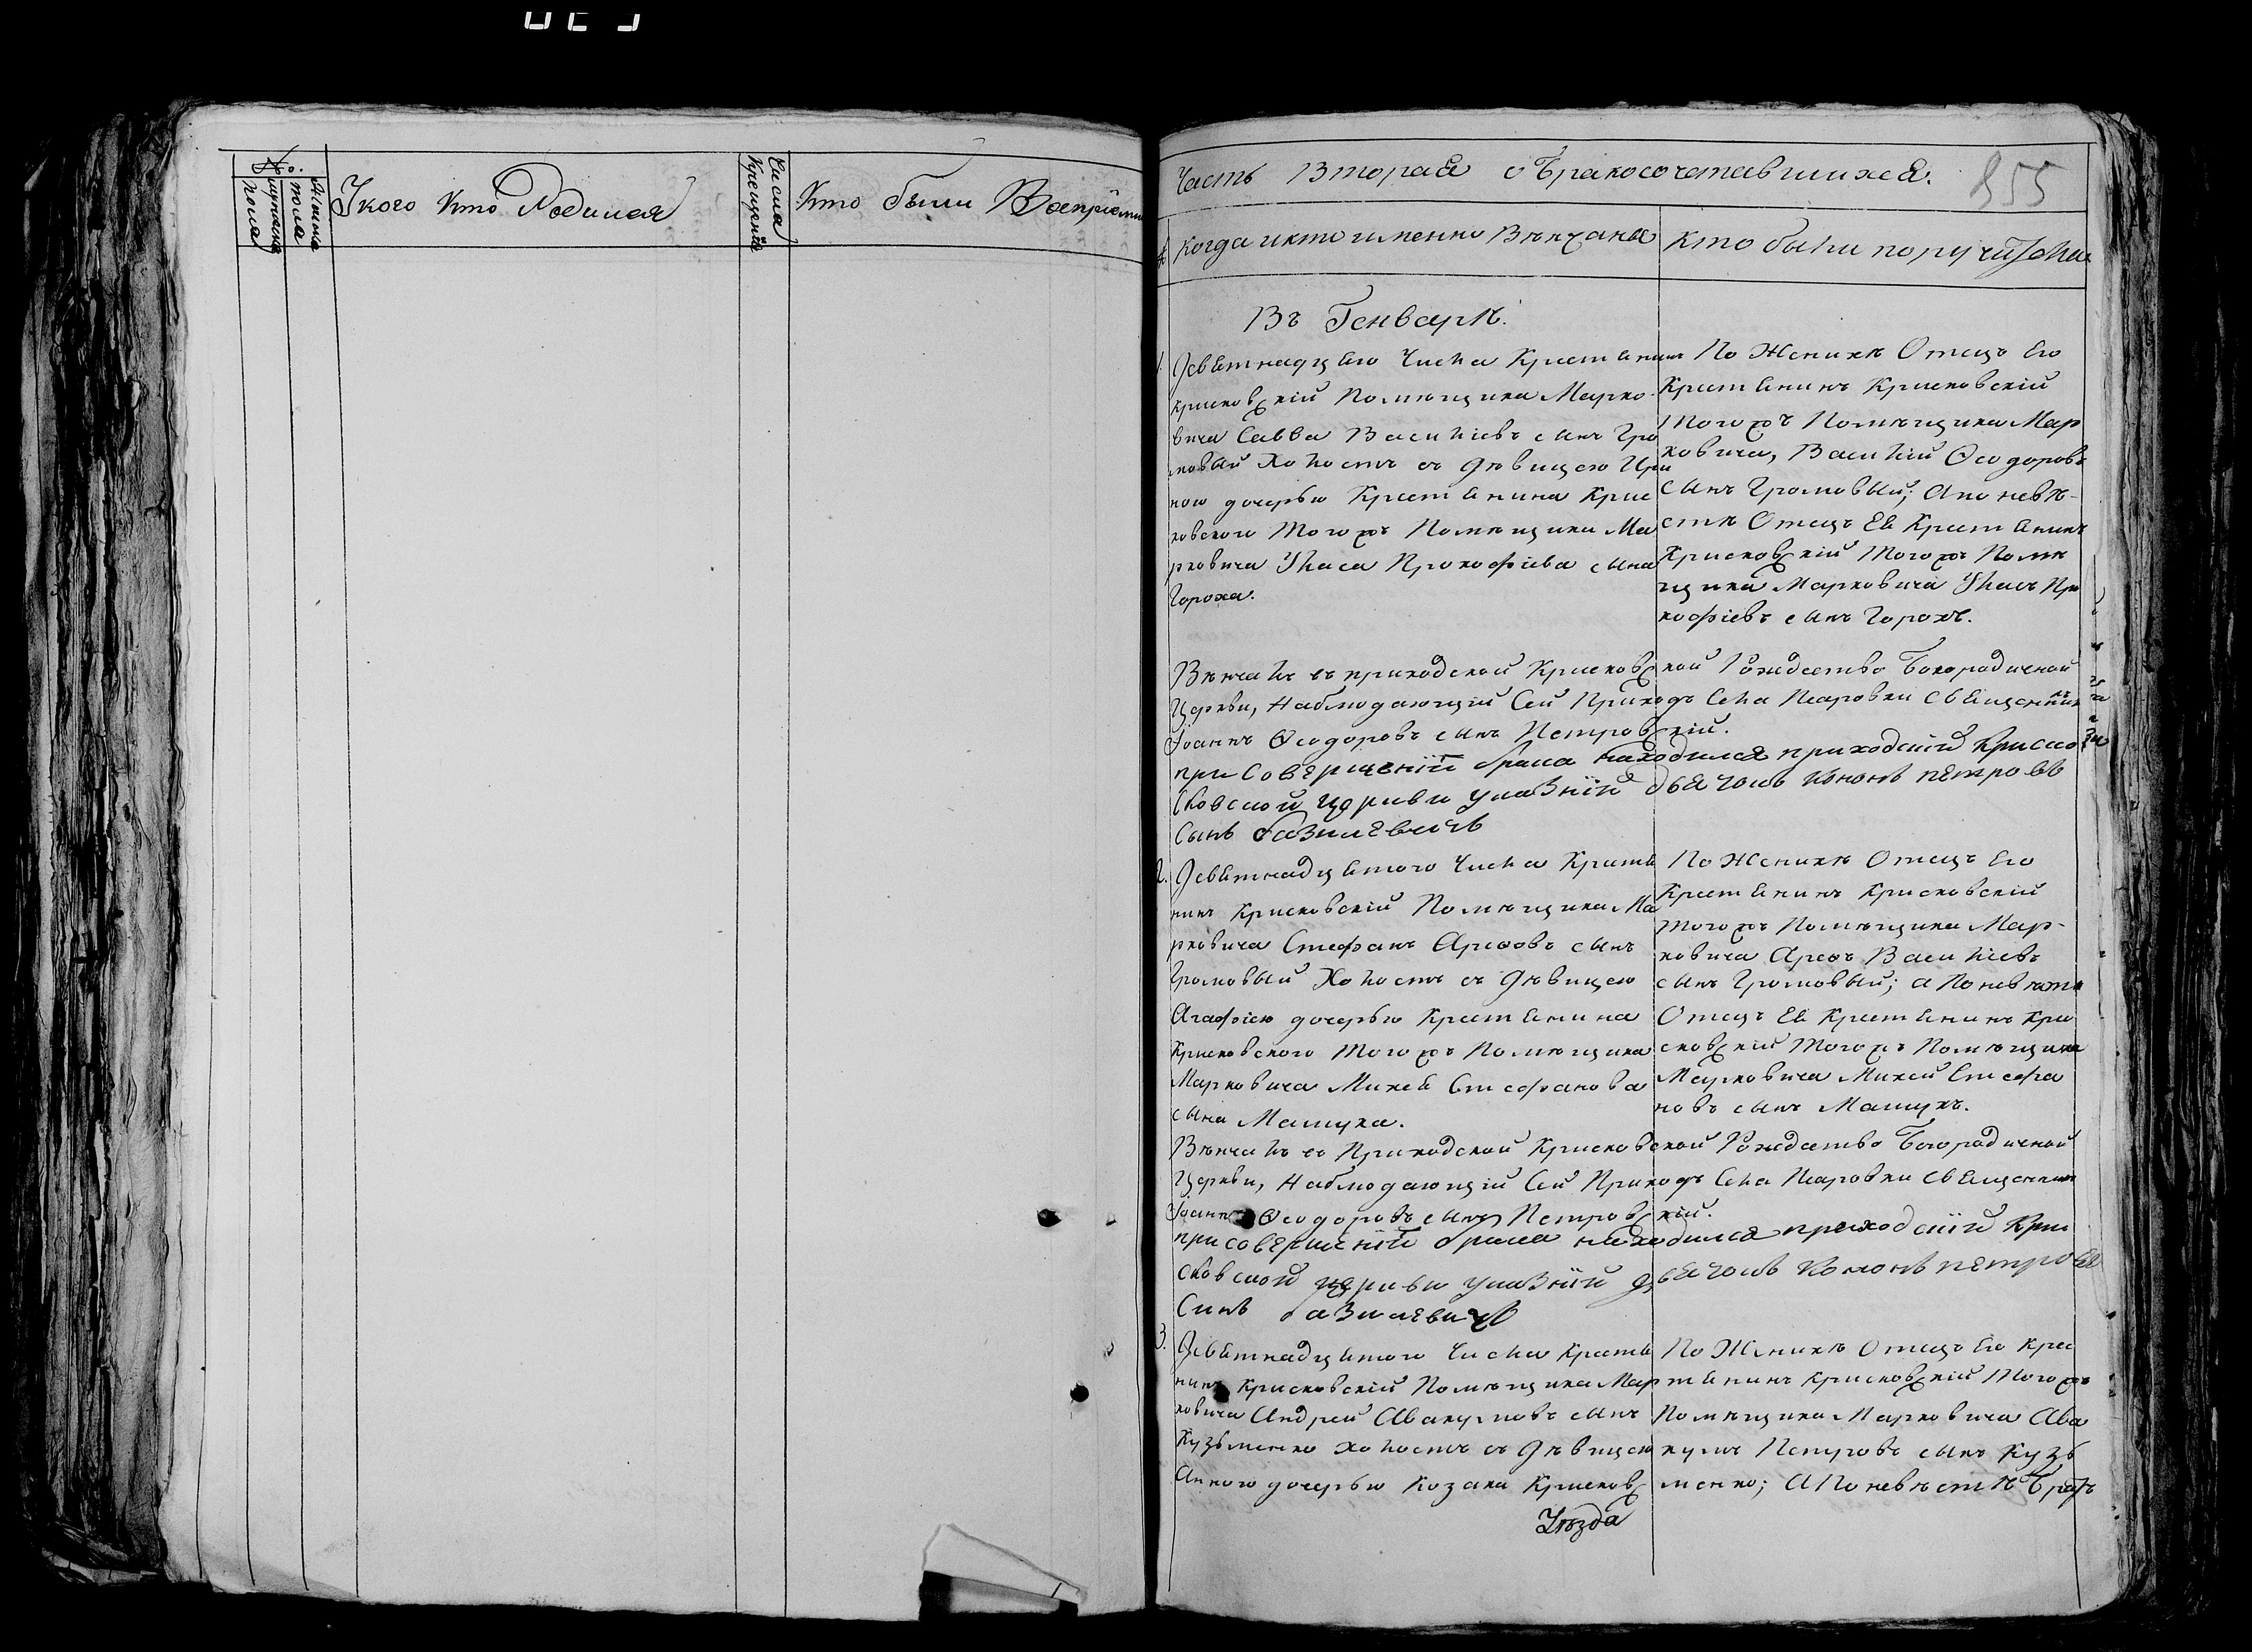 №.
мужеска пола
женска пола
У кого кто Родился
Числа Крещения
Кто были Воспріемн
Часть Вторая о Бракосочетавшихся.
355
№
Когда и кто именно Вѣнчаны
Кто были поручители
Въ Генварѣ.
1.
Девятнадцято Числа Крестянинъ
Крисковскій Помѣщика Марко
вича Савва Василіевъ сынъ Гро
мовый Холостъ съ Дѣвицею Ири
ною дочерью Крестянина Крис
ковского Тогожъ Помѣщика Ма
рковича Уласа Прокофіева сына
Гороха.
По Женихѣ Отецъ Его
Крестянинъ Крисковскій
Тогожъ Помѣщика Мар
ковича, Василій Ѳеодоровъ
сынъ Громовый; А по невѣ-
стѣ Отецъ Ея Крестянинъ
Крисковскій Тогожъ Помѣ
щика Марковича Уласъ Про
кофіевъ сынъ Горохъ.
Вѣнчалъ въ приходской Крисковской Рождество Богородичной
Церкви, Наблюдающій Сей Приходъ Села Псаровки Священникъ
Іоаннъ Ѳеодоровъ сынъ Петровскій.
при Совершеніи брака находился приходскій Криско
сковской церкви указній дьячокъ Кононъ петровъ
Сынъ базилевичъ
2.
Девятнадцятого Числа Крестя
нинъ Крисковскій Помѣщика Ма
рковича Стефанъ Арефовъ сынъ
Громовый Холостъ съ Дѣвицею
Агафіею дочерью Крестянина
Крисковского Тогожъ Помѣщика
Марковича Михея Стефанова
сына Мащука.
По Женихѣ Отецъ Его
Крестянинъ Крисковскій
Тогожъ Помѣщика Мар-
ковича Арефъ Василіевъ
сынъ Громовый; а По невѣстѣ
Отецъ Ея Крестянинъ Кри
сковскій Тогожъ Помѣщика
Марковича Михей Стефа
новъ сынъ Мащукъ.
Вѣнчалъ въ Приходской Крисковской Рождество Богородичной
Церкви, Наблюдающій Сей Приходъ Села Псаровки Священникъ
Іоаннъ Ѳеодоровъ сынъ Петровскій.
при совершеніи брака находился приходскій Кри
сковской церкви указній дьячокъ Кононъ петровъ
Синъ базилевичъ
3.
Девятнадцятого Числа Крестя
нинъ Крисковскій Помѣщика Мар
ковича Андрей Авакумовъ сынъ
Кузьменко холостъ съ Дѣвицею
Анною дочерью Козака Крисков
По Женихѣ Отецъ Его Крес
тянинъ Крисковскій Тогожъ
Помѣщика Марковича Ава
кумъ Петровъ сынъ Кузь
менко; А По невѣстѣ Братъ
Уѣзда